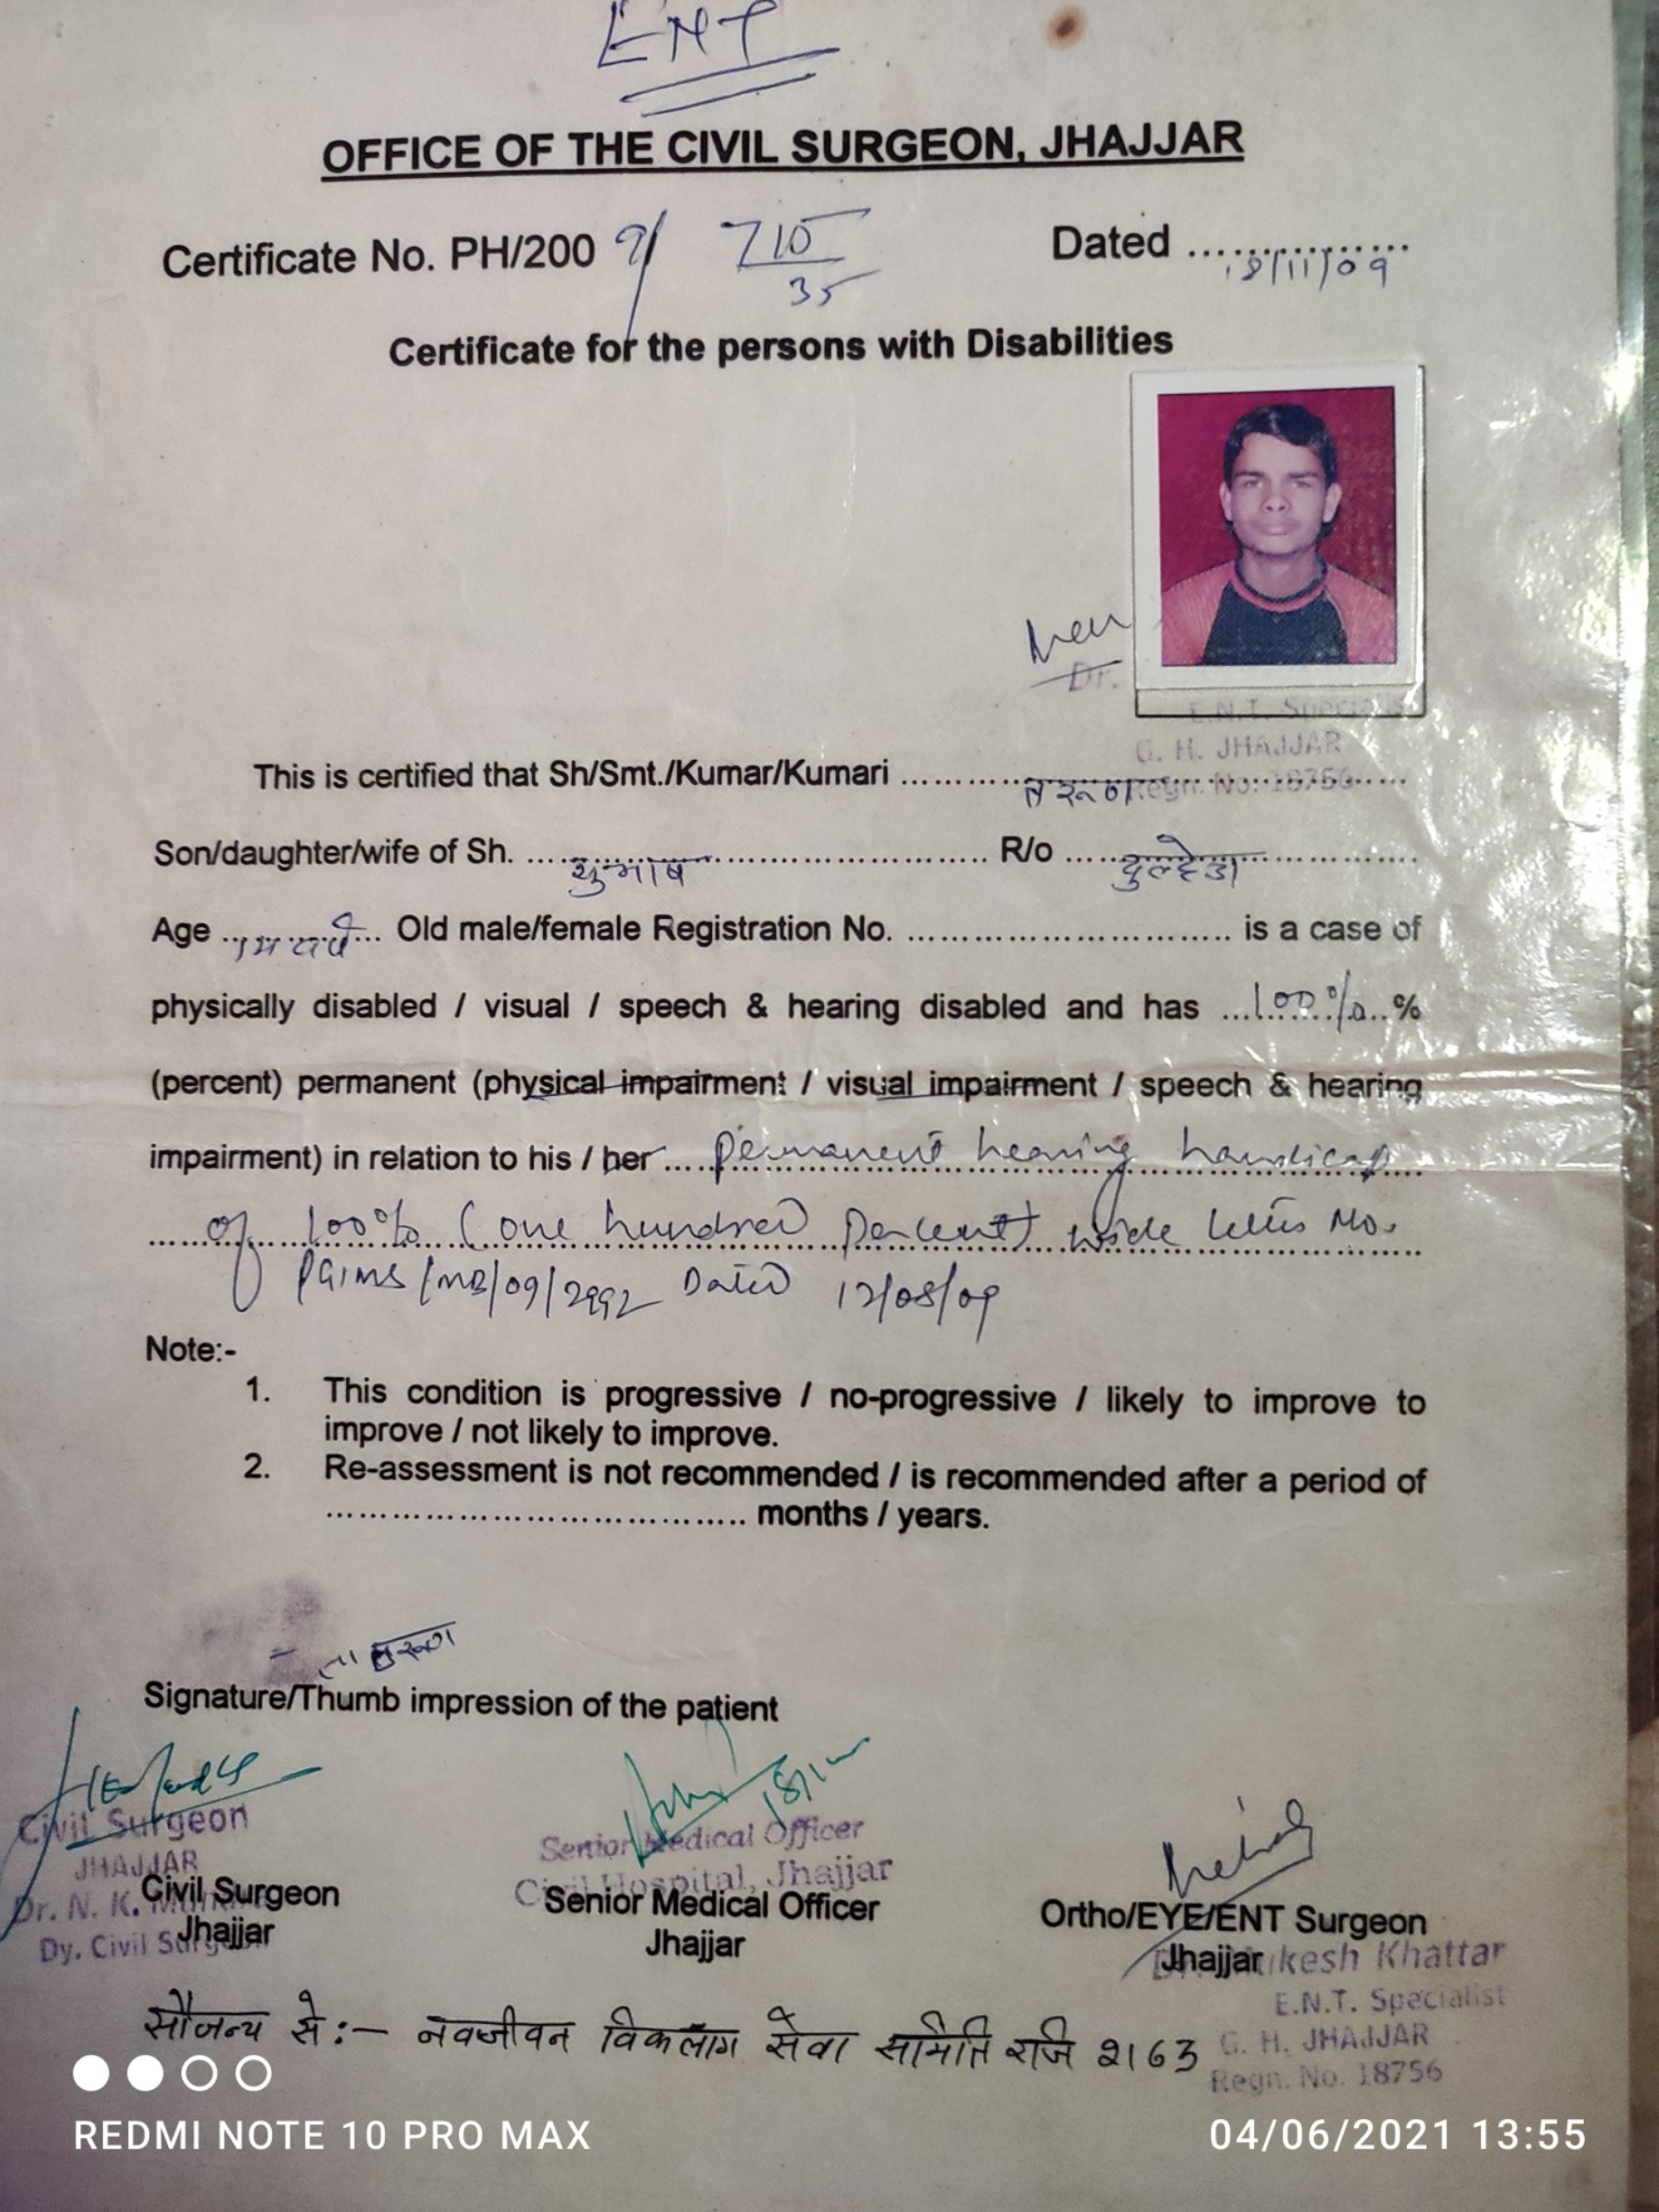 ENT
OFFICE OF THE CIVIL SURGEON, JHAJJAR
Certificate No. PH/200 9/ 710/35 Dated ................ 18/11/09
Certificate for the persons with Disabilities
Dr.
E.N.T. Specialist
G. H. JHAJJAR
Regn. No. 18756
This is certified that Sh/Smt./Kumar/Kumari ............ तरूण
Son/daughter/wife of Sh. ............ सुभाष ............ R/o ............ दुल्हेडा
Age ............ वर्ष ... Old male/female Registration No. .............................. is a case of
physically disabled / visual / speech & hearing disabled and has ...100%..%
(percent) permanent (physical impairment / visual impairment / speech & hearing
impairment) in relation to his / her .... Permanent hearing handicap
of 100% (one hundred percent) wide letter No.
PGIMS/MB/09/2992 Dated 12/08/09
Note:-
1. This condition is progressive / no-progressive / likely to improve to
improve / not likely to improve.
2. Re-assessment is not recommended / is recommended after a period of
...................................... months / years.
तरूण
Signature/Thumb impression of the patient
18/11
Civil Surgeon
JHAJJAR
Dr. N. K.
Dy. Civil Surgeon
Civil Surgeon
Jhajjar
Senior Medical Officer
Civil Hospital, Jhajjar
Senior Medical Officer
Jhajjar
Ortho/EYE/ENT Surgeon
Jhajjar
Dr. Mukesh Khattar
E.N.T. Specialist
G. H. JHAJJAR
Regn. No. 18756
सौजन्य से:- नवजीवन विकलांग सेवा समिति रजि 2163
REDMI NOTE 10 PRO MAX
04/06/2021 13:55